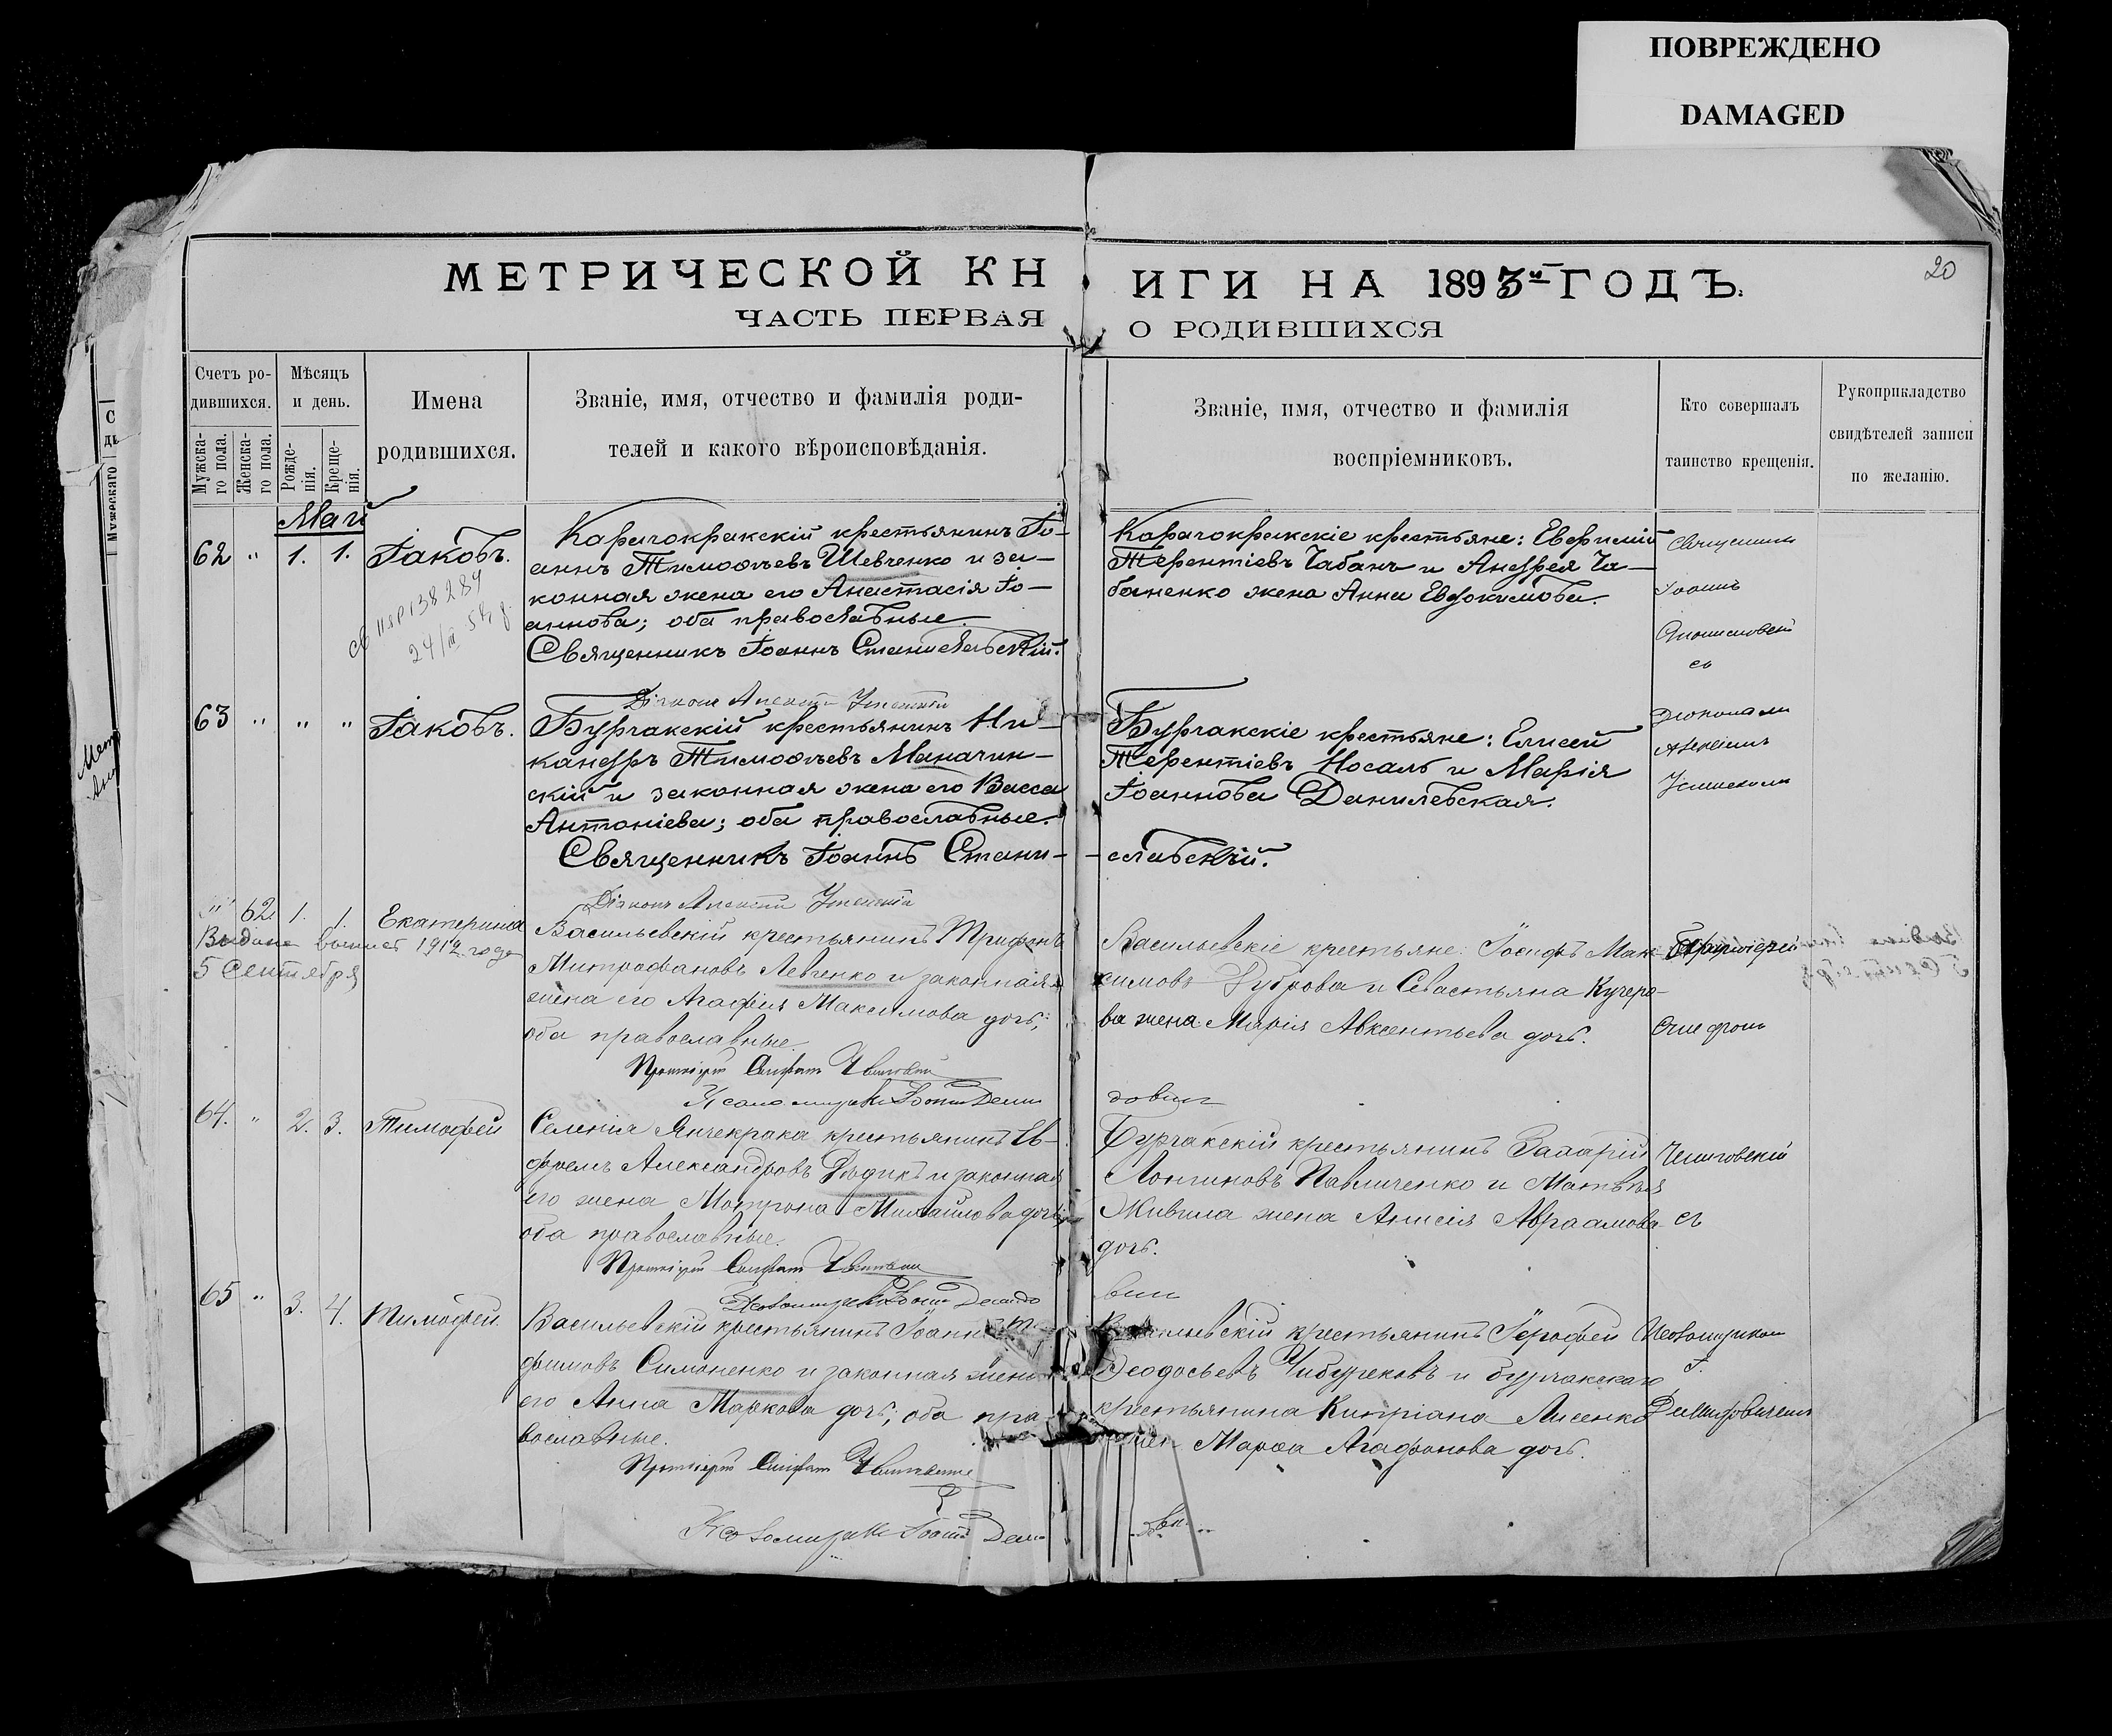 ПОВРЕЖДЕНО
DAMAGED
МЕТРИЧЕСКОЙ КН
ИГИ НА 1893й ГОДЪ.
20
ЧАСТЬ ПЕРВАЯ
О РОДИВШИХСЯ
Счетъ ро-
дившихся.
Мужска-
го пола.
Женска-
го пола.
Мѣсяцъ
и день.
Рожде-
нія.
Креще-
нія.
Имена
родившихся.
Званіе, имя, отчество и фамилія роди-
телей и какого вѣроисповѣданія.
Званіе, имя, отчество и фамилія
воспріемниковъ.
Кто совершалъ
таинство крещенія.
Рукоприкладство
свидѣтелей записи
по желанію.
Май
62 " 1. 1. Іаковъ.
24/III
Карачокракскій крестьянинъ Іо-
аннъ Тимоѳѣевъ Шевченко и за-
конная жена его Анастасія Іо-
аннова; оба православные.
Священникъ Іоаннъ Станиславскій.
Карачокракскіе крестьяне: Евфимій
Терентіевъ Чабанъ и Андрея Ча-
баненко жена Анна Евдокимова.
Священник
Іоаннъ
Станиславскій
съ
Діаконъ Алексій
63 " " " Іаковъ.
Бурчакскій крестьянинъ Ни-
кандръ Тимоѳѣевъ Маначин-
скій и законная жена его Васса
Антоніева; оба православные.
Священникъ Іоаннъ Стани-
-славскій.
Бурчакскіе крестьяне: Елисей
Терентіевъ Носаль и Марія
Іоаннова Данилевская.
Діакономъ
Алексіемъ
Діаконъ Алексій
" 62 1. 1. Екатерина
Выдана выпись 1912 года
5 Сентября
Васильевскій крестьянинъ Трифонъ
Митрофановъ Левченко и законная
жена его Агафія Максимова дочь;
оба православные.
Протоіерей
Псаломщикъ Іоаннъ Деми
довичъ
Васильевскіе крестьяне: Іосифъ Мак-
симовъ Дуброва и Севастьяна Кучеро-
ва жена Марія Авксентьева дочь.
Протоіерей
64. " 2. 3. Тимофей
Селенія Янчекрака крестьянинъ Еф-
фремъ Александровъ Дудикъ и законная
его жена Мотрона Михайлова дочь;
оба православные.
Протоіерей
Псаломщикъ Іоаннъ Демидо
вичъ
Бурчакскій крестьянинъ Захарій
Лонгиновъ Павличенко и Матвѣя
Живила жена Анисія Авраамова
дочь.
съ
65 " 3. 4. Тимофей
Васильевскій крестьянинъ Іоаннъ
фимовъ Симоненко и законная жена
его Анна Маркова дочь; оба пра
вославные.
Протоіерей
Псаломщикъ Іоаннъ Деми
Васильевскій крестьянинъ Іерофей
Ѳеодосьевъ Чибурековъ и бурчакскаго
крестьянина Кипріана Лисенко
жена Марѳа Агафонова дочь.
Псаломщикомъ
І.
Демидовичемъ